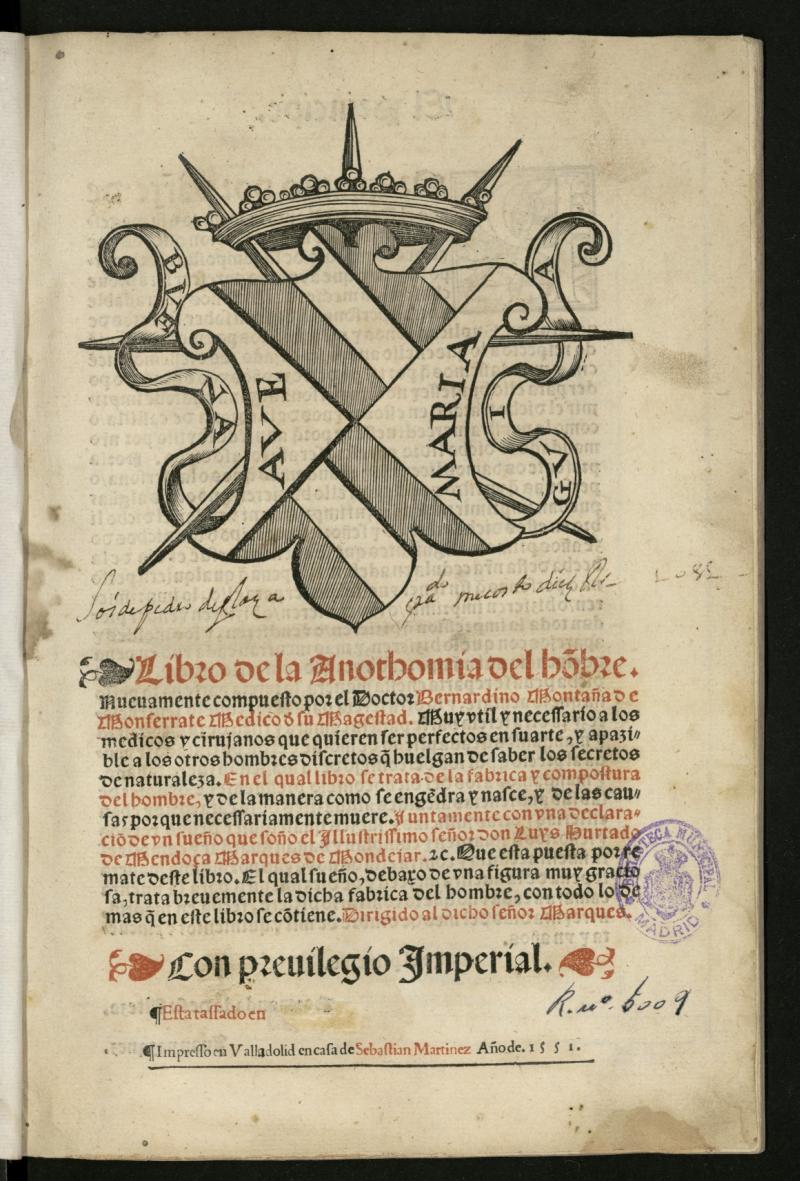 BVE
NA
AVE
MARIA
GVI
A
Sòi de pedro de
me costo diez Rs
Libro de la Anothomia del hõbre.
Nueuamente compuesto por el Doctor Bernardino Montaña de
Monserrate Medico d̃ su Magestad. Muy vtil y necessario a los
medicos y cirujanos que quieren ser perfectos en su arte, y apazi-
ble a los otros hombres discretos q̃ huelgan de saber los secretos
de naturaleza. En el qual libro se trata de la fabrica y compostura
del hombre, y de la manera como se engẽdra y nasce, y de las cau-
sas porque necessariamente muere. Juntamente con vna declara-
ciõ de vn sueño que soño el Illustrissimo señor don Luys Hurtado
de Mendoça Marques de Mondejar. ⁊c. Que esta puesta por re
mate deste libro. El qual sueño, debaxo de vna figura muy gracio
sa, trata breuemente la dicha fabrica del hombre, con todo lo de
mas q̃ en este libro se cõtiene. Dirigido al dicho señor Marques.
BIBLIOTECA MUNICIPAL
MADRID
Con preuilegio Imperial.
R. nº. 6009
¶Esta tassado en
¶Impresso en Valladolid en casa de Sebastian Martinez Año de. 1551.